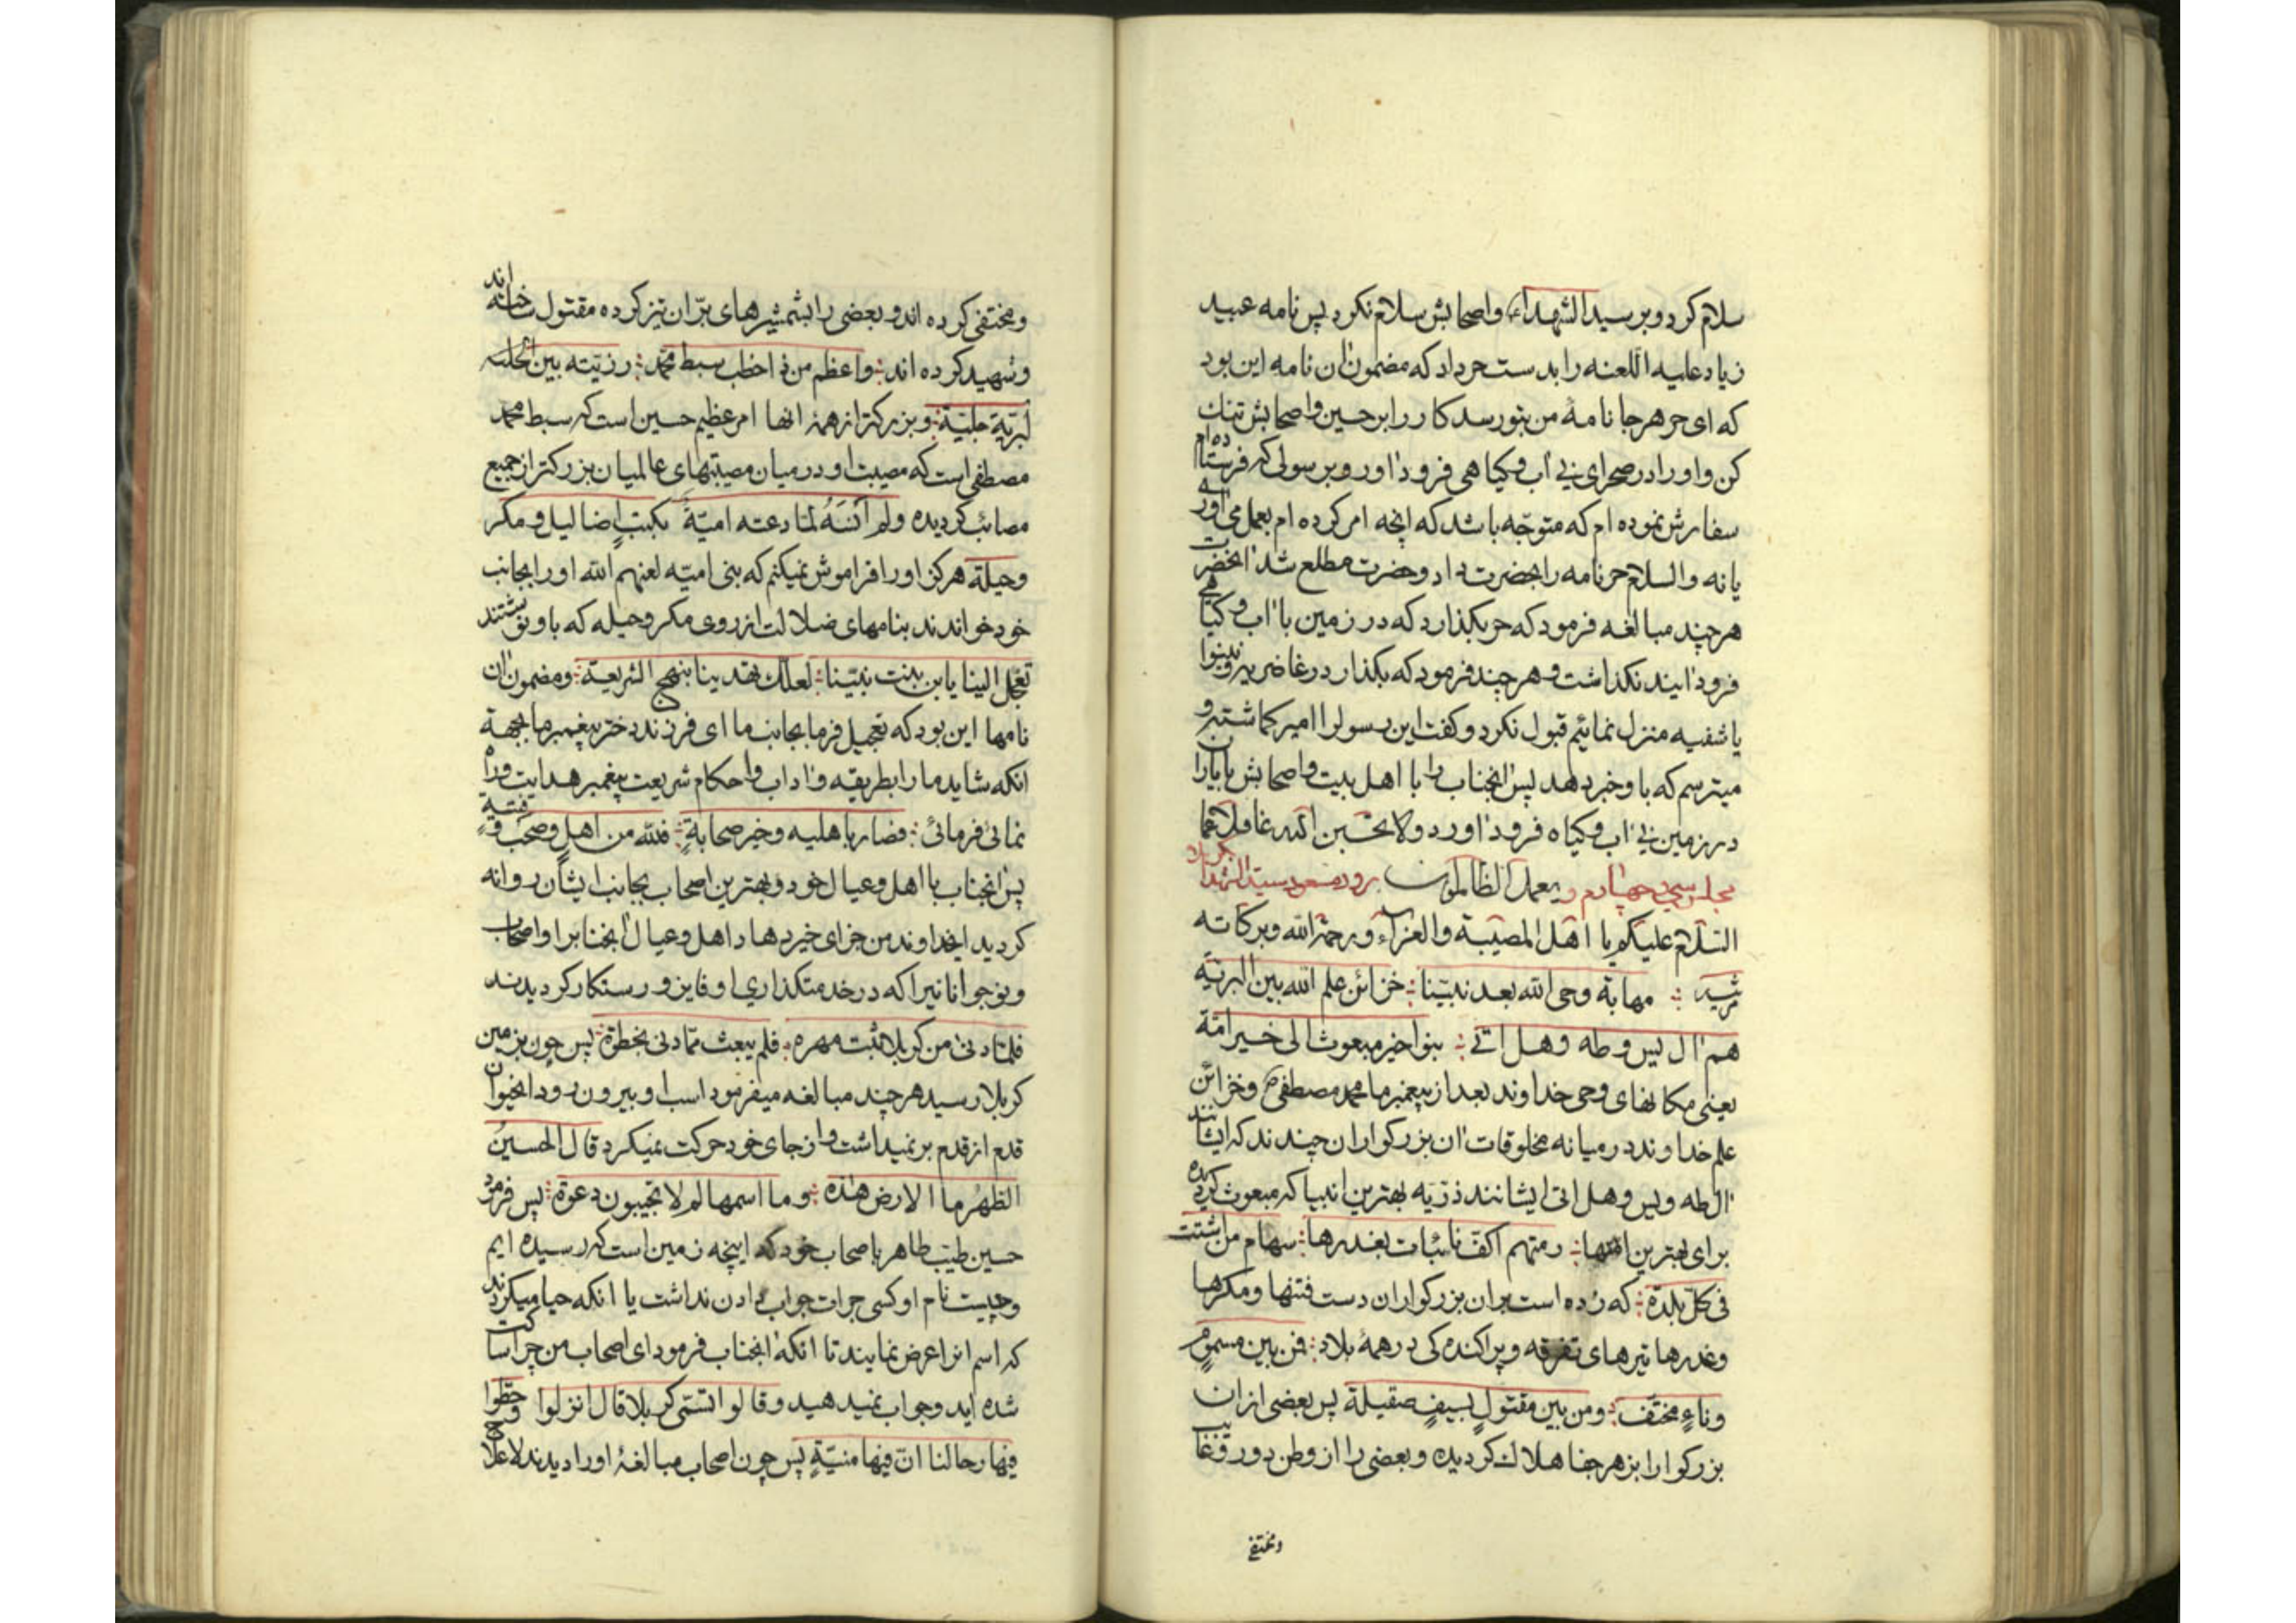 سلام کرد و بر سید الشهداء و اصحابش سلام نکرد پس نامه عبید
زیاد علیه اللعنه را بدست حر داد که مضمون آن نامه این بود
که ای حر هر جا نامهٔ من بتو رسد کار را بر حسین و اصحابش تنک
کن و او را در صحرای بی آب و کیاهی فرود آور و بر سولی که فرستاده ام
سفارش نموده ام که متوجّه باشد که آنچه امر کرده ام بعمل می آور
یا نه والسلام حر نامه را بحضرت داد و حضرت مطلع شد آنحضرت
هر چند مبالغه فرمود که حر بکذارد که در زمین با آب و کیاهی
فرود آیند نکذاشت و هر چند فرمود که بکذار در غاضریه و نینوا
یا شفیه منزل نمائیم قبول نکرد و کفت این رسول را امیر کماشته و
میترسم که باو خبر دهد پس آنجناب را با اهل بیت و اصحابش
در زمین بی آب و کیاه فرود آورد ولا تحسبن الله غافلا عما
مجلس سی و چهارم یعمل الظالمون در ورود سید الشهدا بکربلا
السّلام علیکم یا اهل المصیبة والعزاء و رحمة الله و برکاته
مرثیه ؛ مهابة وحی الله بعد نبیّنا ؛ خزائن علم الله بین البریّه
هم آل یس و طه و هل اتی ؛ بنوا خیر مبعوث الی خیر امّة
یعنی مکانهای وحی خداوند بعد از پیغمبر ما محمد مصطفی ص و خزائن
علم خداوند در میانه مخلوقات آن بزرکواران چندند که ایشانند
آل طه و یس و هل اتی ایشانند ذرّیه بهترین انبیا که مبعوث کردیده
برای بهترین امتها ؛ رمتهم اکفّ نائبات بغدرها ؛ سهام من اشتت
فی کلّ بلدة ؛ که زده است بر آن بزرکواران دست فتنها و مکرها
و غدرها تیرهای تفرقه و پراکنده کی در همهٔ بلاد ؛ فن بین مسموم
و ناءٍ مختف ؛ و من بین مقتولٍ بسیفٍ صقیلة پس بعضی از آن
بزرکوارا بزهر جفا هلاک کردیده و بعضی را از وطن دور و غایب
و مختفی
و مختفی کرده اند و بعضی را بشمشیرهای برّان تیز کرده مقتول ساخته اند
و شهید کرده اند ؛ و اعظم من ذا خطب سبط محمّد ؛ رزیّته بین
البریّة جلیّة ؛ و بزرکتر از همهٔ آنها امر عظیم حسین است که سبط محمد
مصطفی است که مصیبت او در میان مصیبتهای عالمیان بزرکتر از جمیع
مصائب کردیده و لم انسَهُ لمّا دعته امیّةُ بکتب اضالیل و مکر
و حیلة هرکز او را فراموش نمیکنم که بنی امیّه لعنهم الله او را بجانب
خود خواندند بنامهای ضلالت از روی مکر و حیله که باو نوشتند
تعجّل الینا یابن بنت نبیّنا ؛ لعلّک تهدینا بنهج الشریعة ؛ و مضمون آن
نامها این بود که تعجیل فرما بجانب ما ای فرزند دختر پیغمبر ما بجهة
آنکه شاید ما را بطریقه و آداب و احکام شریعت پیغمبر هدایت و راه
نمائی فرمائی ؛ فصار باهلیه و خیر صحابةٍ ؛ فلله من اهلٍ و صحبٍ و فتیةٍ
پس آنجناب با اهل و عیال خود و بهترین اصحاب بجانب ایشان روانه
کردید ایخداوند من جزای خیر دهاد اهل و عیال آنجناب را و اصحاب
و نوجوانانیرا که در خدمتکذاری او فایز و رستکار کردیدند
فلمّا دنی من کربلا ثبت مهره ؛ فلم یبعث ممّا دنی بخطوة ؛ پس چون بزمین
کربلا رسید هر چند مبالغه میفرمود اسب او بیرون رود آنحیوان
قدم از قدم بر نمیداشت و از جای خود حرکت نمیکرد قال الحسینُ
الطّهرُ ما الارض هذه ؛ و ما اسمها لم لا تجیبون دعوة ؛ پس فرمود
حسین طیّب طاهر باصحاب خود که اینچه زمین است که رسیده ایم
و چیست نام او کسی جرات جواب دادن نداشت یا آنکه حیا میکردند
که اسم انرا عرض نمایند تا آنکه آنجناب فرمود ای اصحاب من چرا ساکت
شده اید و جواب نمیدهید و قالوا تسمّی کربلا قال انزلوا و حطّوا
فیها رحالنا انّ فیها منیّةٍ پس چون اصحاب مبالغهٔ او را دیدند لا علاج